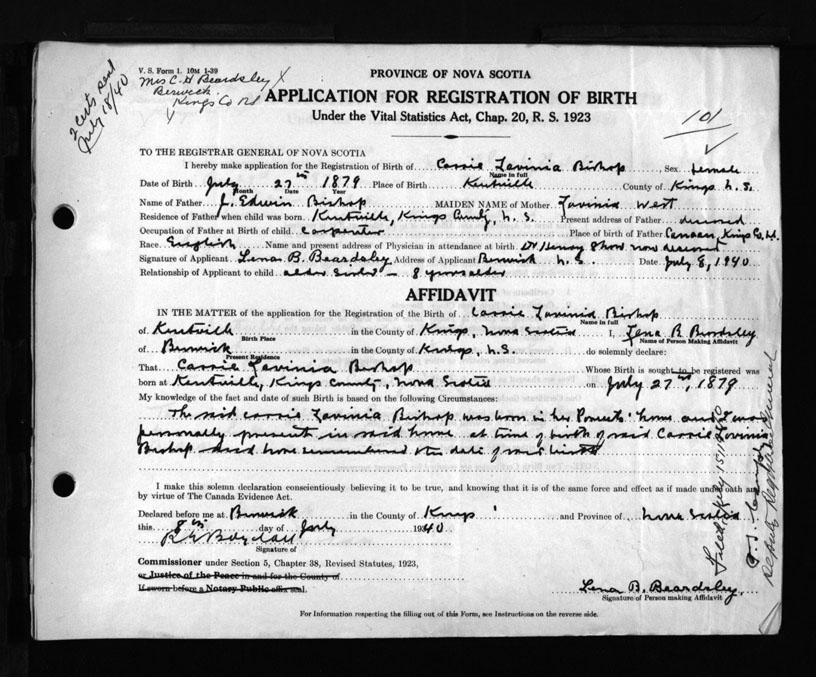 2 cts paid
July 18/40
V. S. Form 1. 10M 1-39
Mrs C. H Beardsley X
Berwick
Kings Co
PROVINCE OF NOVA SCOTIA
APPLICATION FOR REGISTRATION OF BIRTH
Under the Vital Statistics Act, Chap. 20, R. S. 1923
101
TO THE REGISTRAR GENERAL OF NOVA SCOTIA
I hereby make application for the Registration of Birth of Cassie Lavinia Bishop, Sex Female
Name in full
Date of Birth July 27th 1879 Place of Birth Kentville County of Kings N.S.
Month Date Year
Name of Father J. Edwin Bishop MAIDEN NAME of Mother Lavinia West
Residence of Father when child was born Kentville, Kings County, N. S. Present address of Father deceased
Occupation of Father at Birth of child Carpenter Place of birth of Father Canaan, Kings Co. N.S.
Race English Name and present address of Physician in attendance at birth Dr Henry Shaw now deceased
Signature of Applicant Lena B. Beardsley Address of Applicant Berwick N.S. Date July 8, 1940
Relationship of Applicant to child older sister - 8 years older
AFFIDAVIT
IN THE MATTER of the application for the Registration of the Birth of Cassie Lavinia Bishop
Name in full
of Kentville in the County of Kings, Nova Scotia I, Lena B Beardsley
Birth Place Name of Person Making Affidavit
of Berwick in the County of Kings, N.S. do solemnly declare:
Present Residence
That Cassie Lavinia Bishop Whose Birth is sought to be registered was
born at Kentville, Kings County, Nova Scotia on July 27th, 1879
My knowledge of the fact and date of such Birth is based on the following Circumstances:
The said Cassie Lavinia Bishop was born in her Parents' home and I was
personally present in said home at time of birth of said Cassie Lavinia
Bishop and have remembered the date of said birth
I make this solemn declaration conscientiously believing it to be true, and knowing that it is of the same force and effect as if made under oath and
by virtue of The Canada Evidence Act.
Declared before me at Berwick in the County of Kings and Province of Nova Scotia
this 8th day of July 1940
Signature of
Commissioner under Section 5, Chapter 38, Revised Statutes, 1923,
or Justice of the Peace in and for the County of
If sworn before a Notary Public affix seal.
Lena B. Beardsley
Signature of Person making Affidavit
For Information respecting the filling out of this Form, see Instructions on the reverse side.
Filed July 15th 1940
Deputy Registrar General